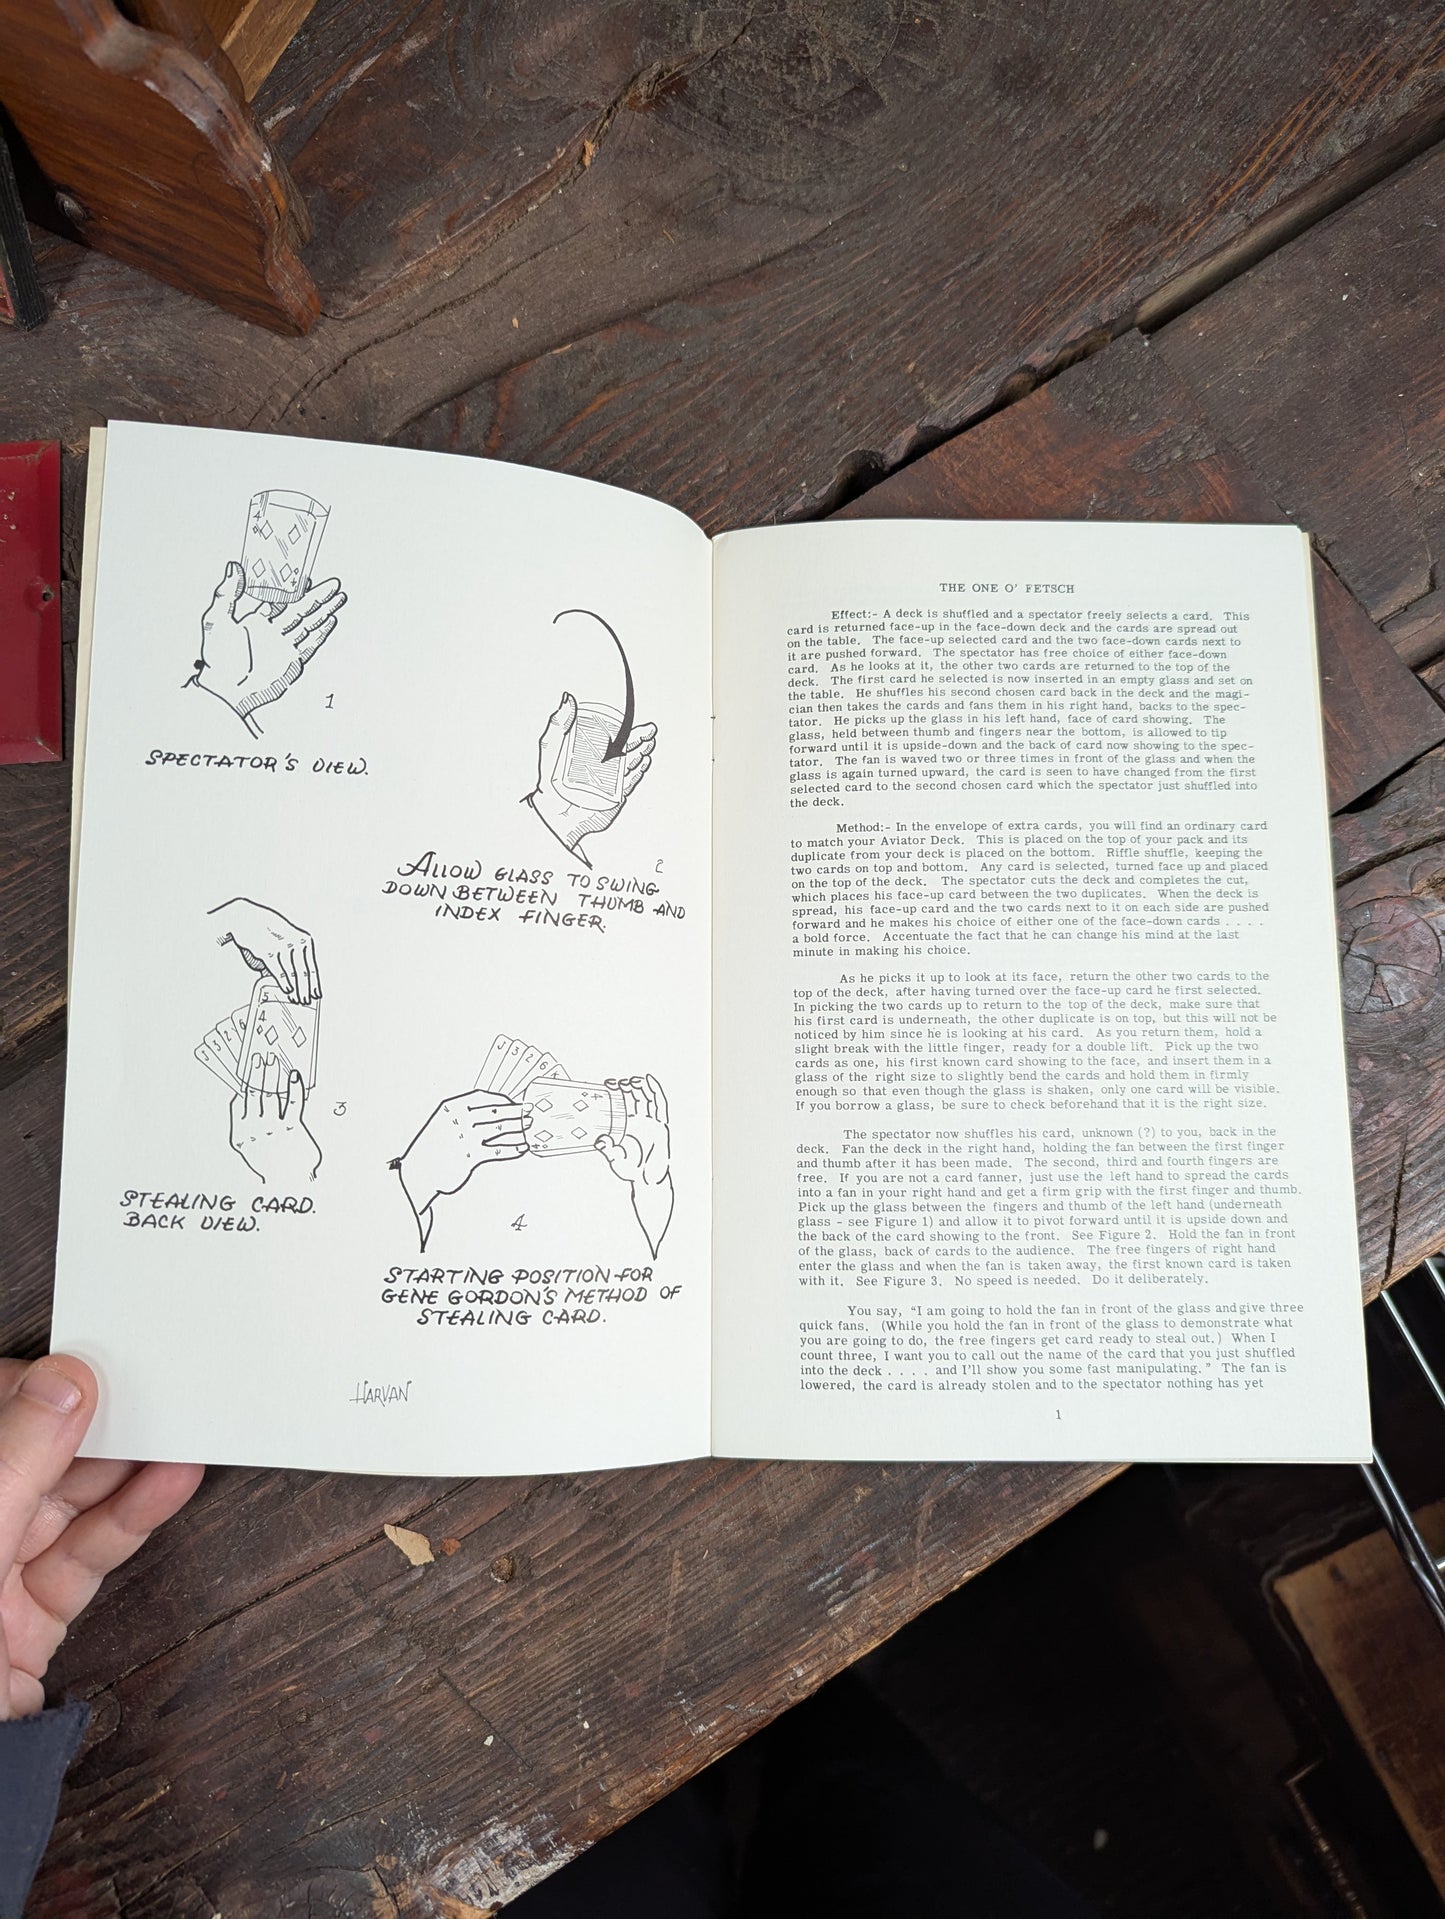 1
SPECTATOR'S VIEW.
2
ALLOW GLASS TO SWING
DOWN BETWEEN THUMB AND
INDEX FINGER.
3
STEALING CARD.
BACK VIEW.
4
STARTING POSITION FOR
GENE GORDON'S METHOD OF
STEALING CARD.
HARVAN
THE ONE O' FETSCH
Effect:- A deck is shuffled and a spectator freely selects a card. This
card is returned face-up in the face-down deck and the cards are spread out
on the table. The face-up selected card and the two face-down cards next to
it are pushed forward. The spectator has free choice of either face-down
card. As he looks at it, the other two cards are returned to the top of the
deck. The first card he selected is now inserted in an empty glass and set on
the table. He shuffles his second chosen card back in the deck and the magi-
cian then takes the cards and fans them in his right hand, backs to the spec-
tator. He picks up the glass in his left hand, face of card showing. The
glass, held between thumb and fingers near the bottom, is allowed to tip
forward until it is upside-down and the back of card now showing to the spec-
tator. The fan is waved two or three times in front of the glass and when the
glass is again turned upward, the card is seen to have changed from the first
selected card to the second chosen card which the spectator just shuffled into
the deck.
Method:- In the envelope of extra cards, you will find an ordinary card
to match your Aviator Deck. This is placed on the top of your pack and its
duplicate from your deck is placed on the bottom. Riffle shuffle, keeping the
two cards on top and bottom. Any card is selected, turned face up and placed
on the top of the deck. The spectator cuts the deck and completes the cut,
which places his face-up card between the two duplicates. When the deck is
spread, his face-up card and the two cards next to it on each side are pushed
forward and he makes his choice of either one of the face-down cards . . . .
a bold force. Accentuate the fact that he can change his mind at the last
minute in making his choice.
As he picks it up to look at its face, return the other two cards to the
top of the deck, after having turned over the face-up card he first selected.
In picking the two cards up to return to the top of the deck, make sure that
his first card is underneath, the other duplicate is on top, but this will not be
noticed by him since he is looking at his card. As you return them, hold a
slight break with the little finger, ready for a double lift. Pick up the two
cards as one, his first known card showing to the face, and insert them in a
glass of the right size to slightly bend the cards and hold them in firmly
enough so that even though the glass is shaken, only one card will be visible.
If you borrow a glass, be sure to check beforehand that it is the right size.
The spectator now shuffles his card, unknown (?) to you, back in the
deck. Fan the deck in the right hand, holding the fan between the first finger
and thumb after it has been made. The second, third and fourth fingers are
free. If you are not a card fanner, just use the left hand to spread the cards
into a fan in your right hand and get a firm grip with the first finger and thumb.
Pick up the glass between the fingers and thumb of the left hand (underneath
glass - see Figure 1) and allow it to pivot forward until it is upside down and
the back of the card showing to the front. See Figure 2. Hold the fan in front
of the glass, back of cards to the audience. The free fingers of right hand
enter the glass and when the fan is taken away, the first known card is taken
with it. See Figure 3. No speed is needed. Do it deliberately.
You say, "I am going to hold the fan in front of the glass and give three
quick fans. (While you hold the fan in front of the glass to demonstrate what
you are going to do, the free fingers get card ready to steal out.) When I
count three, I want you to call out the name of the card that you just shuffled
into the deck . . . . and I'll show you some fast manipulating." The fan is
lowered, the card is already stolen and to the spectator nothing has yet
1